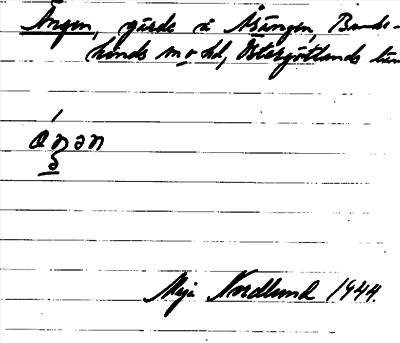 Ängen, gärde å Åsängen, Banke-
kinds m o hd, Östergötlands län
Maja Nordlund 1944.